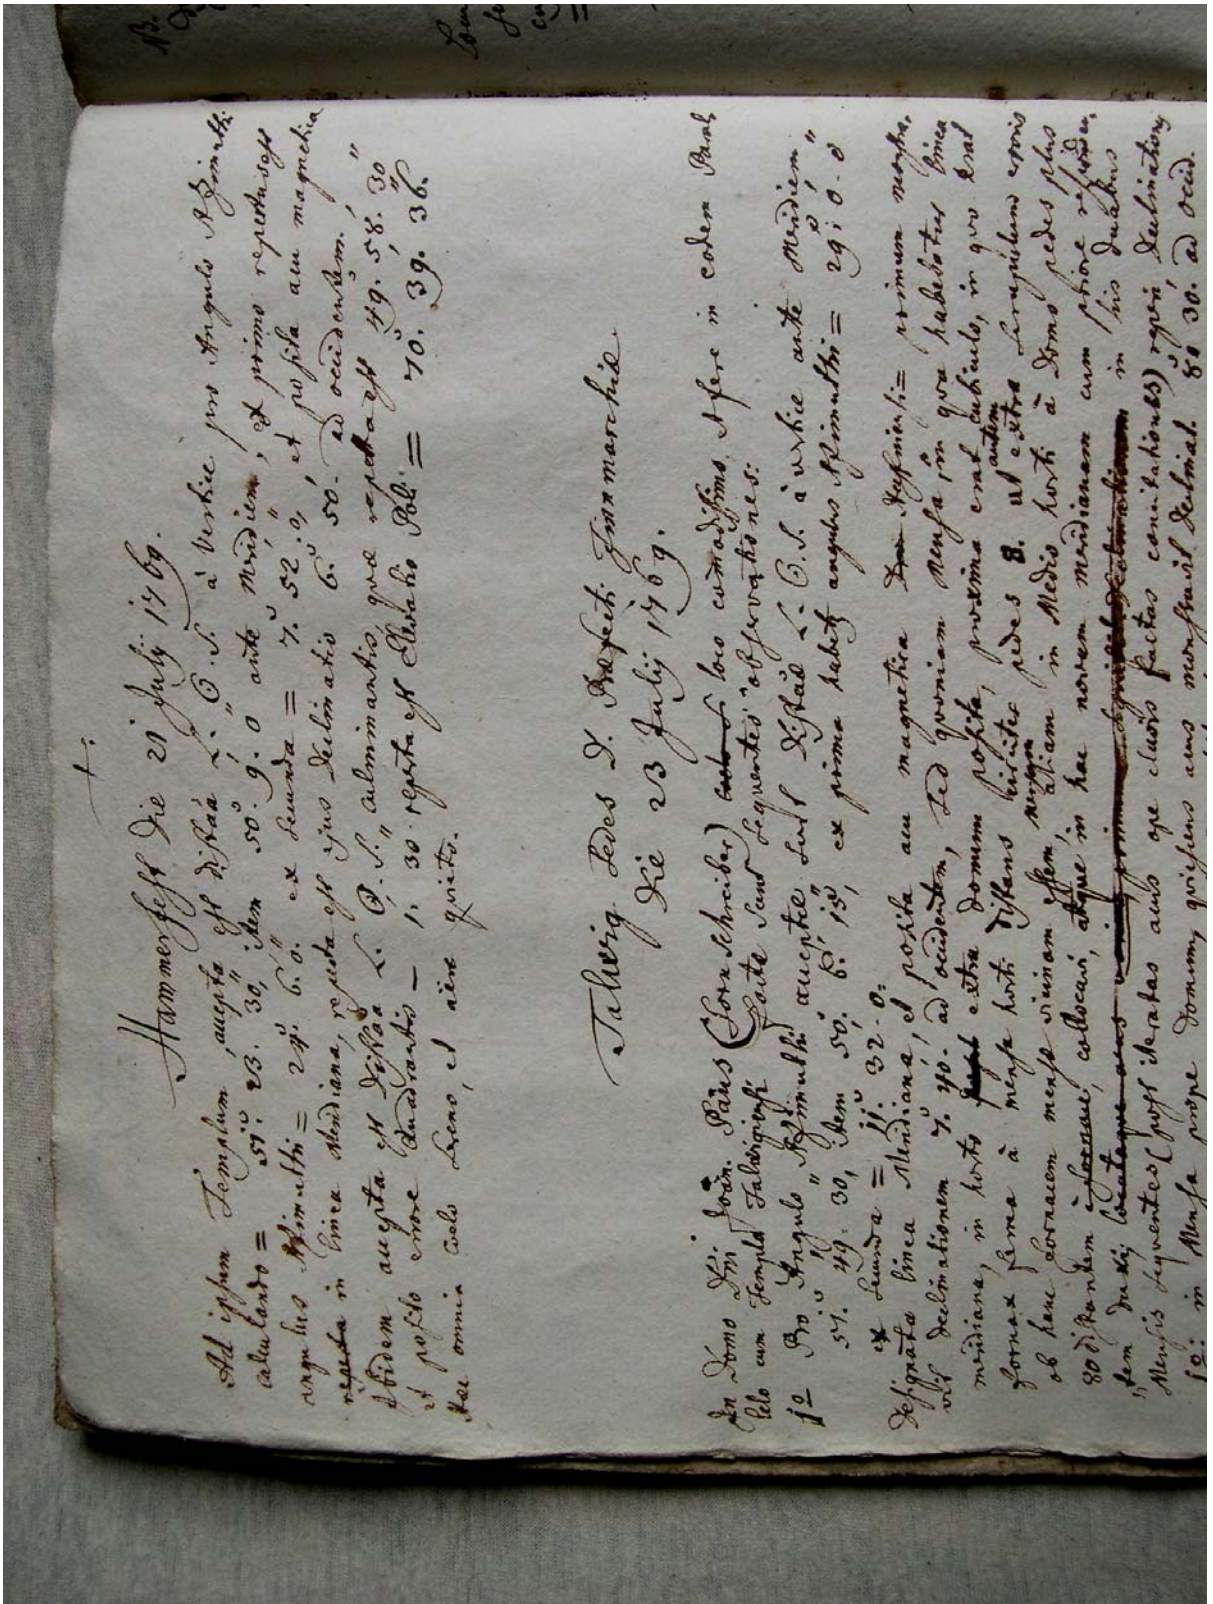 +.
Hammerfest Die 21 Julij 1769.
Ad ipsum Templum, accepta est distãa L. ☉. S. à Vertice pro Angulo Azimuthi
calculando = 51°. 23'. 30", item 50°. 9'. 0" ante Meridiem, ex primo repertus est
angulus Azimuthi = 24°. 6'. 0". ex secunda = 7°. 52'. 0", et posita acu magnetica
reperta in linea Meridiana, reperta est ejus Declinatio 6°. 50'. ad occidentem.
Ibidem accepta est Distãa L. ☉. S. culminantis, quæ reperta est 49°. 58'. 30"
et posito errore Quadrantis — 1'. 30" reperta est Elevatio Poli = 70°. 39'. 36".
Hæc omnia cœlo sereno, et aëre quieto.
Talwig Sedes D. Præfecti Finmarchiæ
Die 23 Julij 1769.
In Domo Dni Joan. Paus (Sorenschreiber) loco comodissimo, et fere in eodem Paral
lelo cum Templo Talwigensi factæ sunt sequentes observationes:
1º Pro Angulo Azimuthi acceptæ sunt Distãæ L. ☉. S. à vertice ante Meridiem
51°. 49'. 30", item 50°. 6'. 15", ex prima habetur angulus Azimuthi = 29°. 0'. 0"
ex secunda = 11°. 32'. 0".
Designata linea Meridiana, et posita acu magnetica primum monstra,
vit declinationem 7°. 40'. ad occidentem, sed quoniam Mensa, in qua habebatur linea
meridiana, in horto extra domum posita, proxima erat cubiculo, in quo erat
fornax ferrea à mensa horti distans circiter pedes 8. ut autem extra scrupulum erroris
ob hanc fornacem mensæ vicinam essem, mensam aliam in Medio horti à Domo pedes plus
80 distantem collocavi, atque in hac novam meridianam cum priore
tem duxi; in his duabus
Mensis sequentes (post iteratas acus ope clavis factas concitationes) reperi Declinationes
1º: in Mensa prope Domum, quiescens acus monstravit Declinat. 8°. 30'. ad occid.